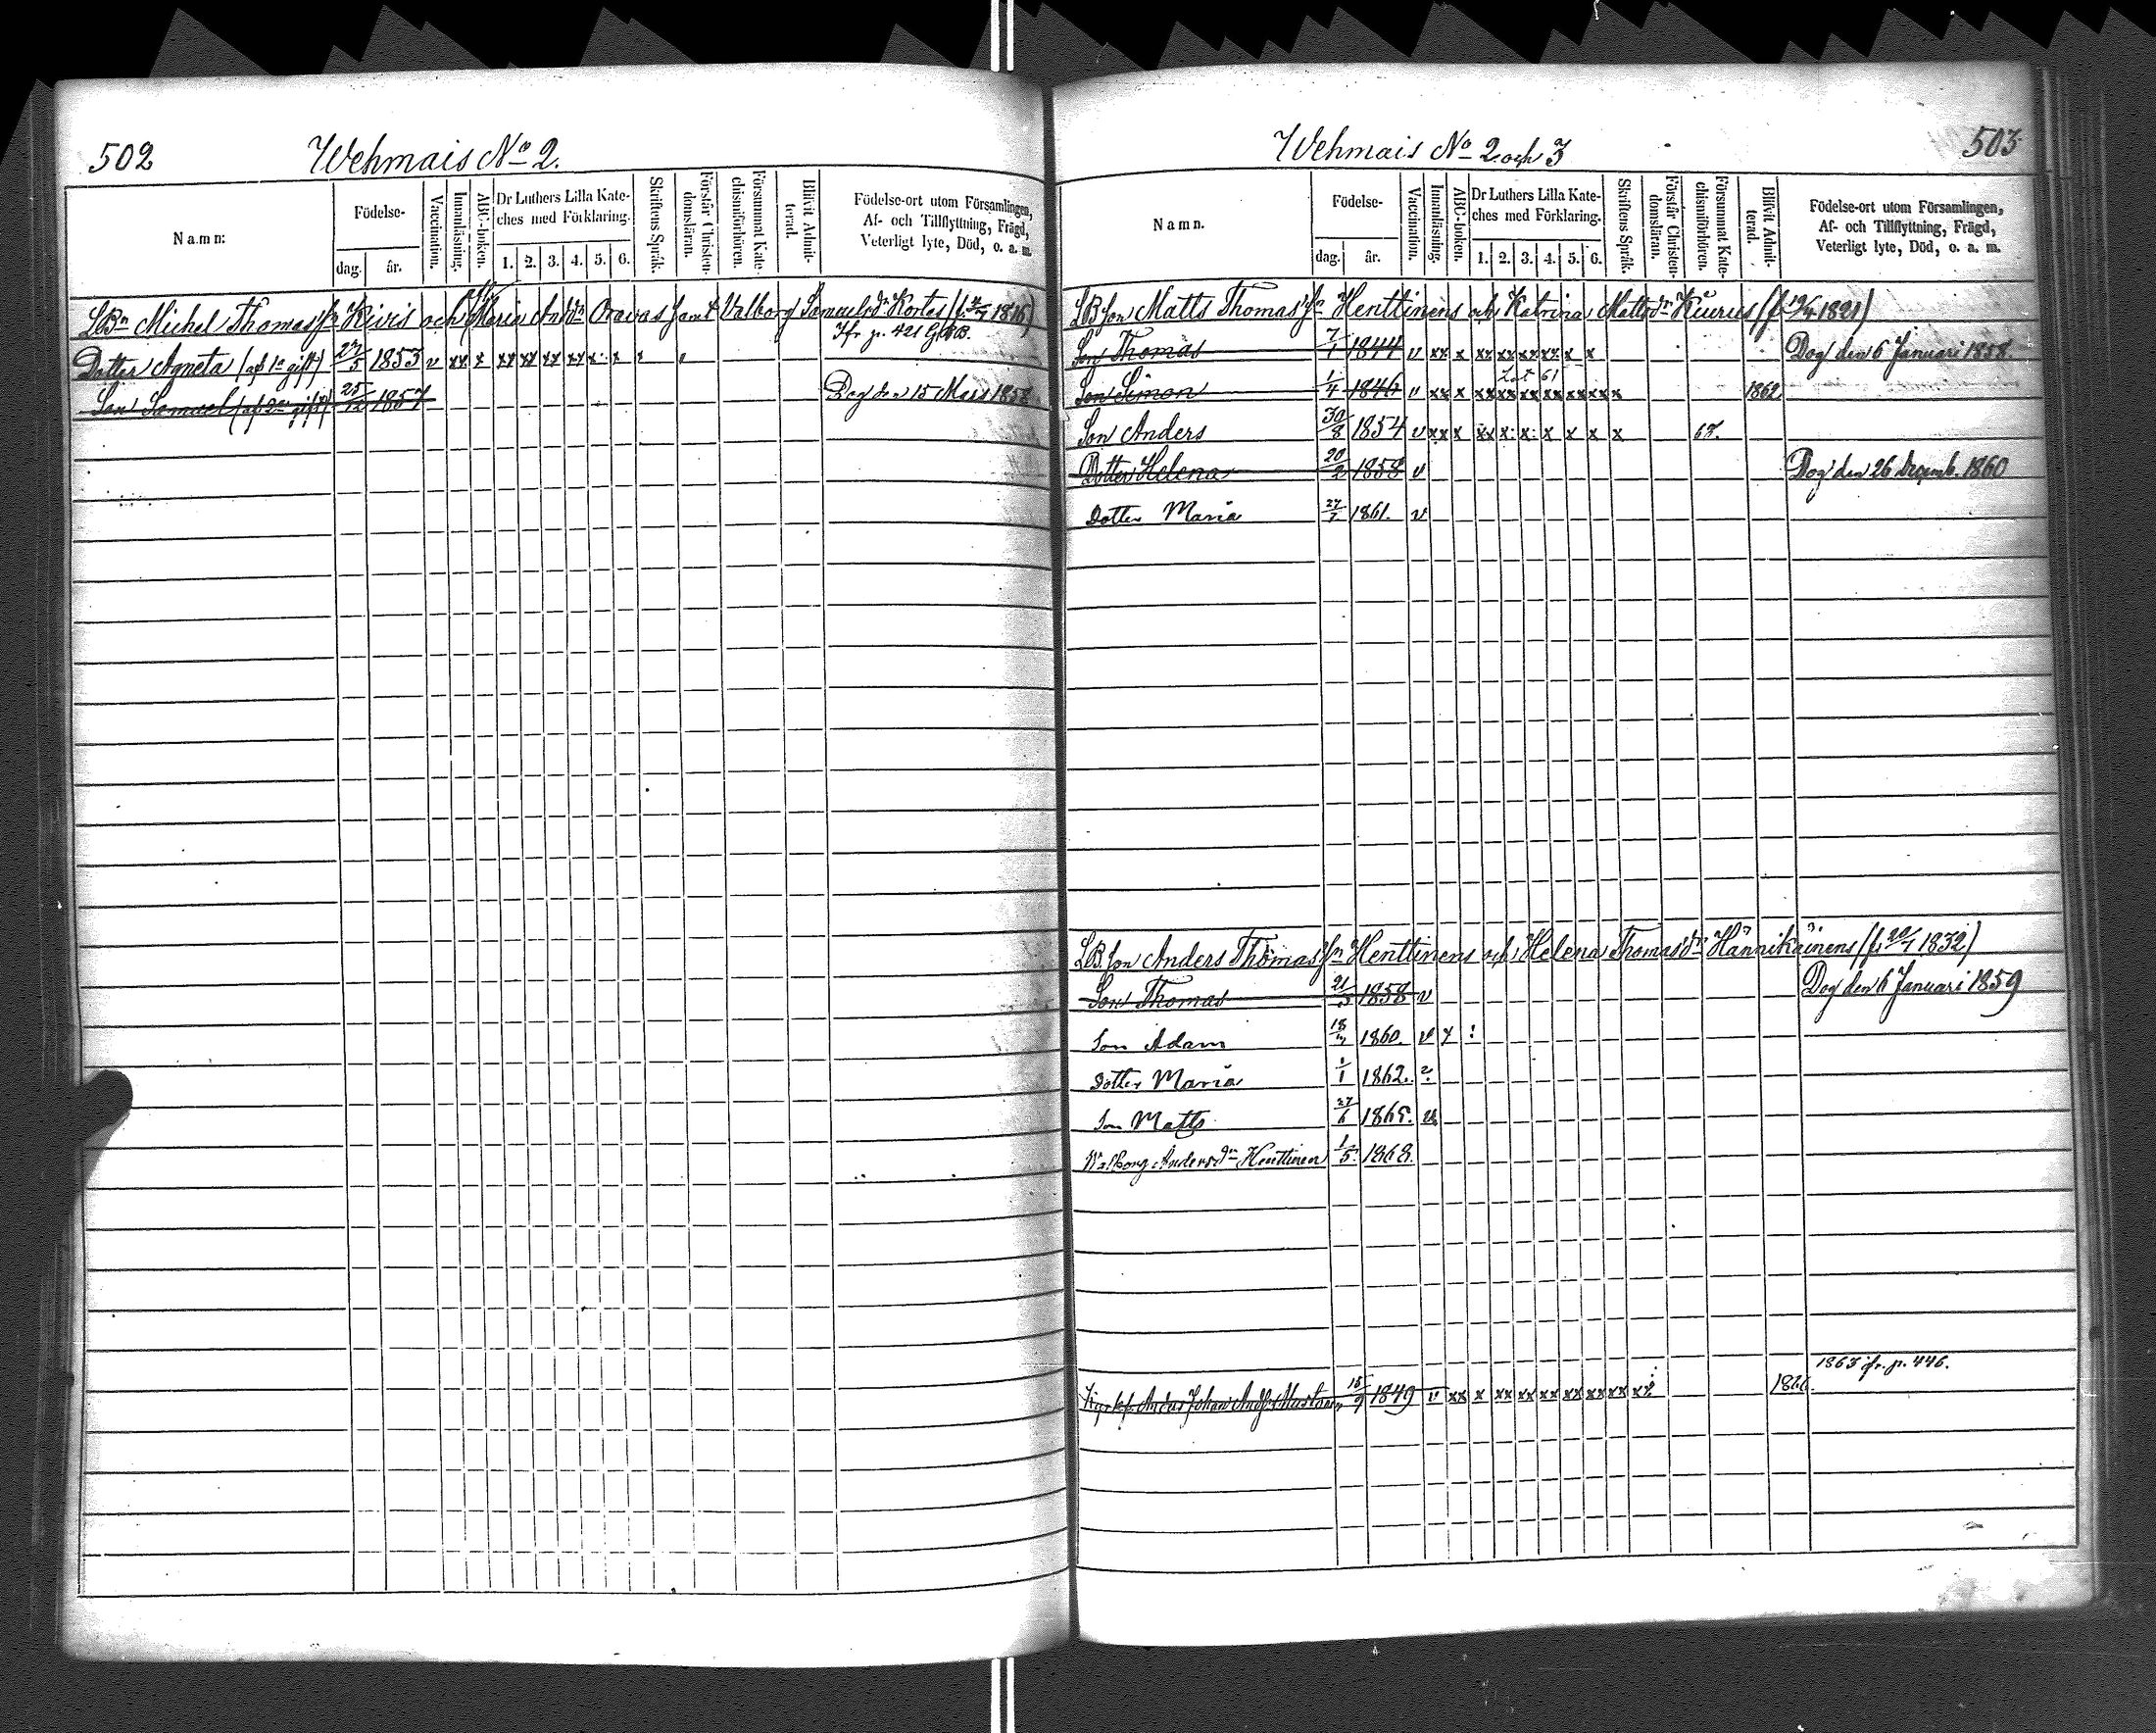 502
Wehmais No 2.
Namn:
Födelse-
dag.
år.
Vaccination.
Innanläsning.
ABC-boken.
Dr Luthers Lilla Kate-
ches med Förklaring.
1. 2. 3. 4. 5. 6.
Skriftens Språk.
Förstår Christen-
domsläran.
Försummat Kate-
chismiförhören.
Blifvit Admit-
terad.
Födelse-ort utom Församlingen,
Af- och Tillflyttning, Frägd,
Veterligt lyte, Död, o. a. m.
LBn Michel Thomasfn Kivis och Maria And:dr Oravas samt Valborg Samuelsdr Kortes 1816)
Jfr p. 421 G.K.B.
Dotter Agneta (af 1a gift) 1853 v xx x xx xx xx xx x. x
Son Samuel (af 2a gift) 25/12 1857 Dog den 15 Mars 1858.
503
Wehmais No 2 och 3
Namn.
Födelse-
dag.
år.
Vaccination.
Innanläsning.
ABC-boken.
Dr Luthers Lilla Kate-
ches med Förklaring.
1. 2. 3. 4. 5. 6.
Skriftens Språk.
Förstår Christen-
domsläran.
Försummat Kate-
chismiförhören.
Blifvit Admit-
terad.
Födelse-ort utom Församlingen,
Af- och Tillflyttning, Frägd,
Veterligt lyte, Död, o. a. m.
LB son Matts Thomasfn Henttinens och Katrina Mattsdr Kiurus (f. 19/4 1821)
Son Thomas 7/1 1844 v xx x xx xx xx xx x x Dog den 6 Januari 1858.
61
Son Simon 1/4 1846 v xx x xx xx xx xx xx xx x 1862
Son Anders 30/8 1854 v xx x xx x: x: x x x x 67.
Dotter Helena 20/2 1858 v Dog den 26 Decemb. 1860
Dotter Maria 27/7 1861. v
LB. son Anders Thomasfn Henttinens och Helena Thomasdr Hännikäinens (f. 20/1 1832)
Son Thomas 21/3 1858 v Dog den 6 Januari 1859
Son Adam 1860. v x :
Dotter Maria 1/1 1862. v.
Son Matts 27/6 1865. v.
Walborg Andersdr Henttinen 1/5. 1868.
1867 jfr. p. 446.
Anders Johan Andfn Mustonen 1849 v xx x xx xx xx xx xx xx xx 1866.